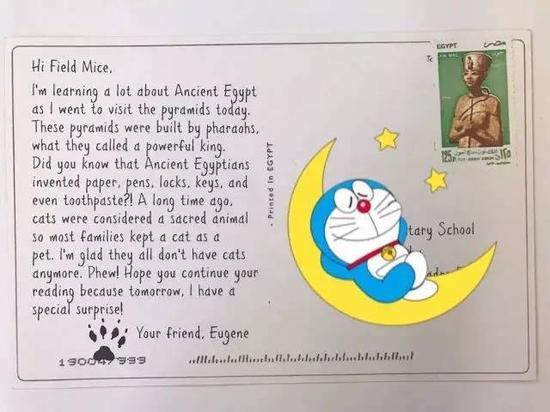 Hi Field Mice,
I'm learning a lot about Ancient Egypt
as I went to visit the pyramids today.
These pyramids were built by pharaohs,
what they called a powerful king.
Did you know that Ancient Egyptians
invented paper, pens, locks, keys, and
even toothpaste?! A long time ago,
cats were considered a sacred animal
so most families kept a cat as a
pet. I'm glad they all don't have cats
anymore. Phew! Hope you continue your
reading because tomorrow, I have a
special surprise!
Your friend, Eugene
Printed in EGYPT
EGYPT
AIR MAIL
125
tary School